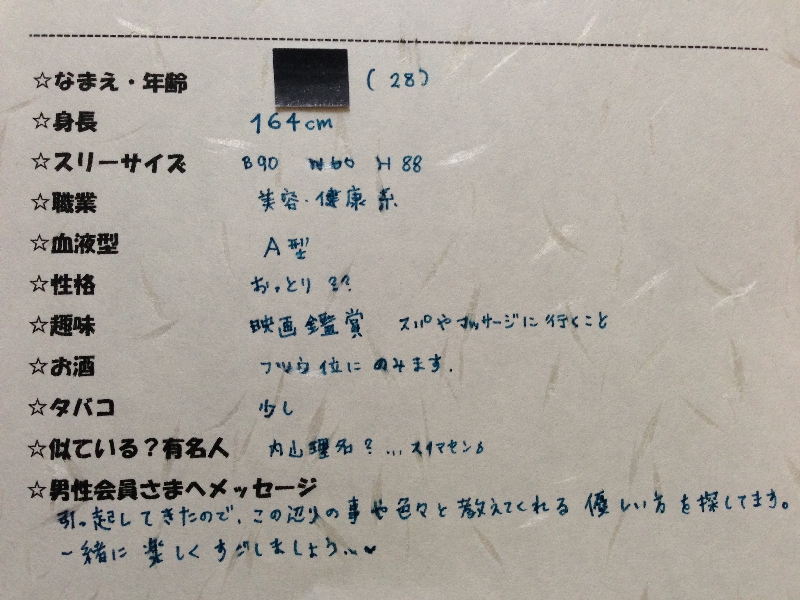 ☆なまえ・年齢 (28)
☆身長 164cm
☆スリーサイズ B90 W60 H88
☆職業 美容・健康系
☆血液型 A型
☆性格 おっとり??
☆趣味 映画鑑賞 スパやマッサージに行くこと
☆お酒 フツウ位にのみます.
☆タバコ 少し
☆似ている?有名人 内山理名?...スイマセン
☆男性会員さまへメッセージ
引っ起してきたので、この辺りの事や色々と教えてくれる優しい方を探してます。
一緒に楽しくすごしましょう...♥